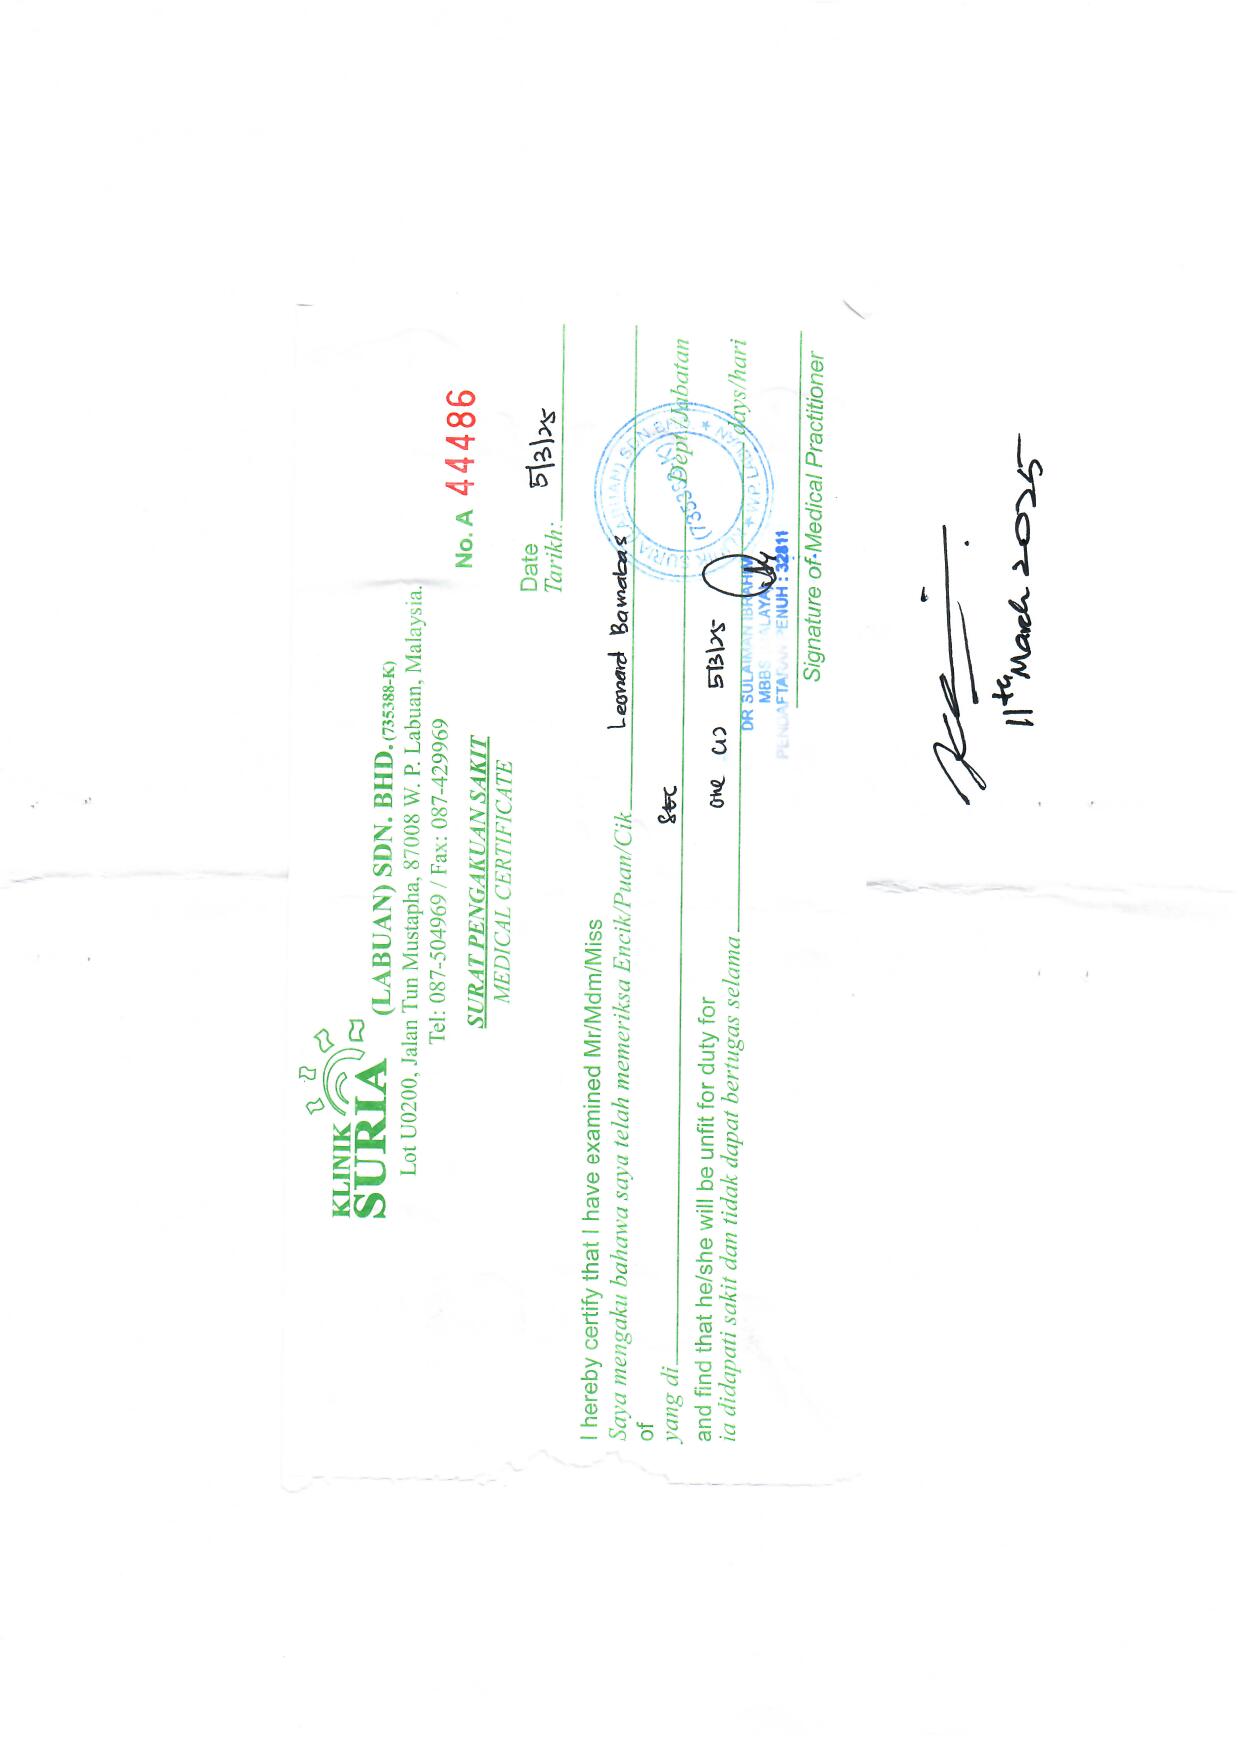 KLINIK
SURIA (LABUAN) SDN. BHD. (735388-K)
Lot U0200, Jalan Tun Mustapha, 87008 W. P. Labuan, Malaysia.
Tel: 087-504969 / Fax: 087-429969
No. A 44486
SURAT PENGAKUAN SAKIT
MEDICAL CERTIFICATE
Date
Tarikh: 5/3/25
I hereby certify that I have examined Mr/Mdm/Miss
Saya mengaku bahawa saya telah memeriksa Encik/Puan/Cik Leonard Barnabas
of
yang di Dept./Jabatan
and find that he/she will be unfit for duty for
ia didapati sakit dan tidak dapat bertugas selama one (1) 5/3/25 days/hari
KLINIK SURIA (LABUAN) SDN. BHD. ★ W.P. LABUAN ★
(735388-K)
DR SULAIMAN IBRAHIM
MBBS MALAYA
PENDAFTARAN PENUH : 32811
Signature of Medical Practitioner
11th March 2025